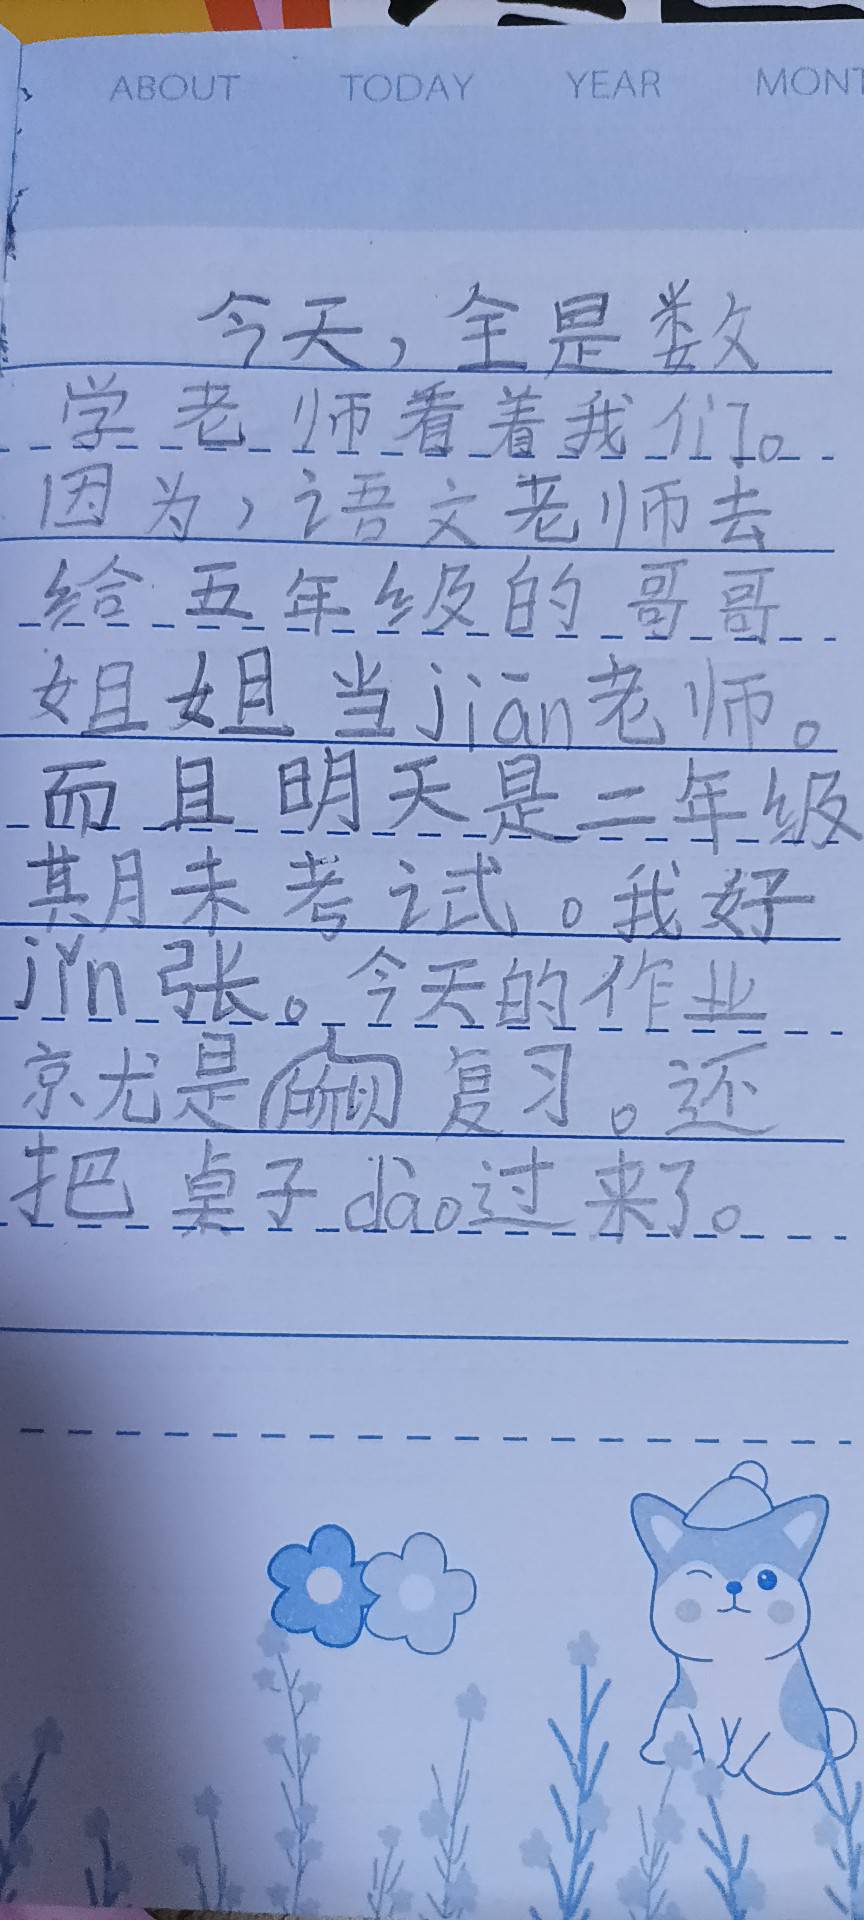 ABOUT TODAY YEAR MONT
今天，全是数
学老师看着我们。
因为，语文老师去
给五年级的哥哥
姐姐当jiān老师。
而且明天是二年级
期未考试。我好
jǐn张。今天的作业
就是复习。还
把桌子dào过来了。